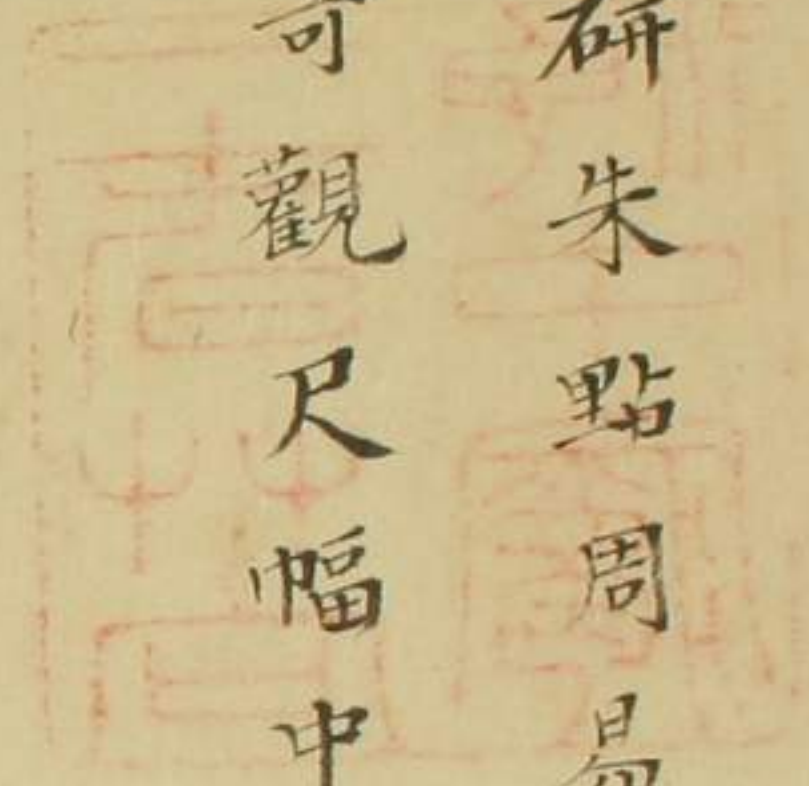 研朱點周易
可觀尺幅中